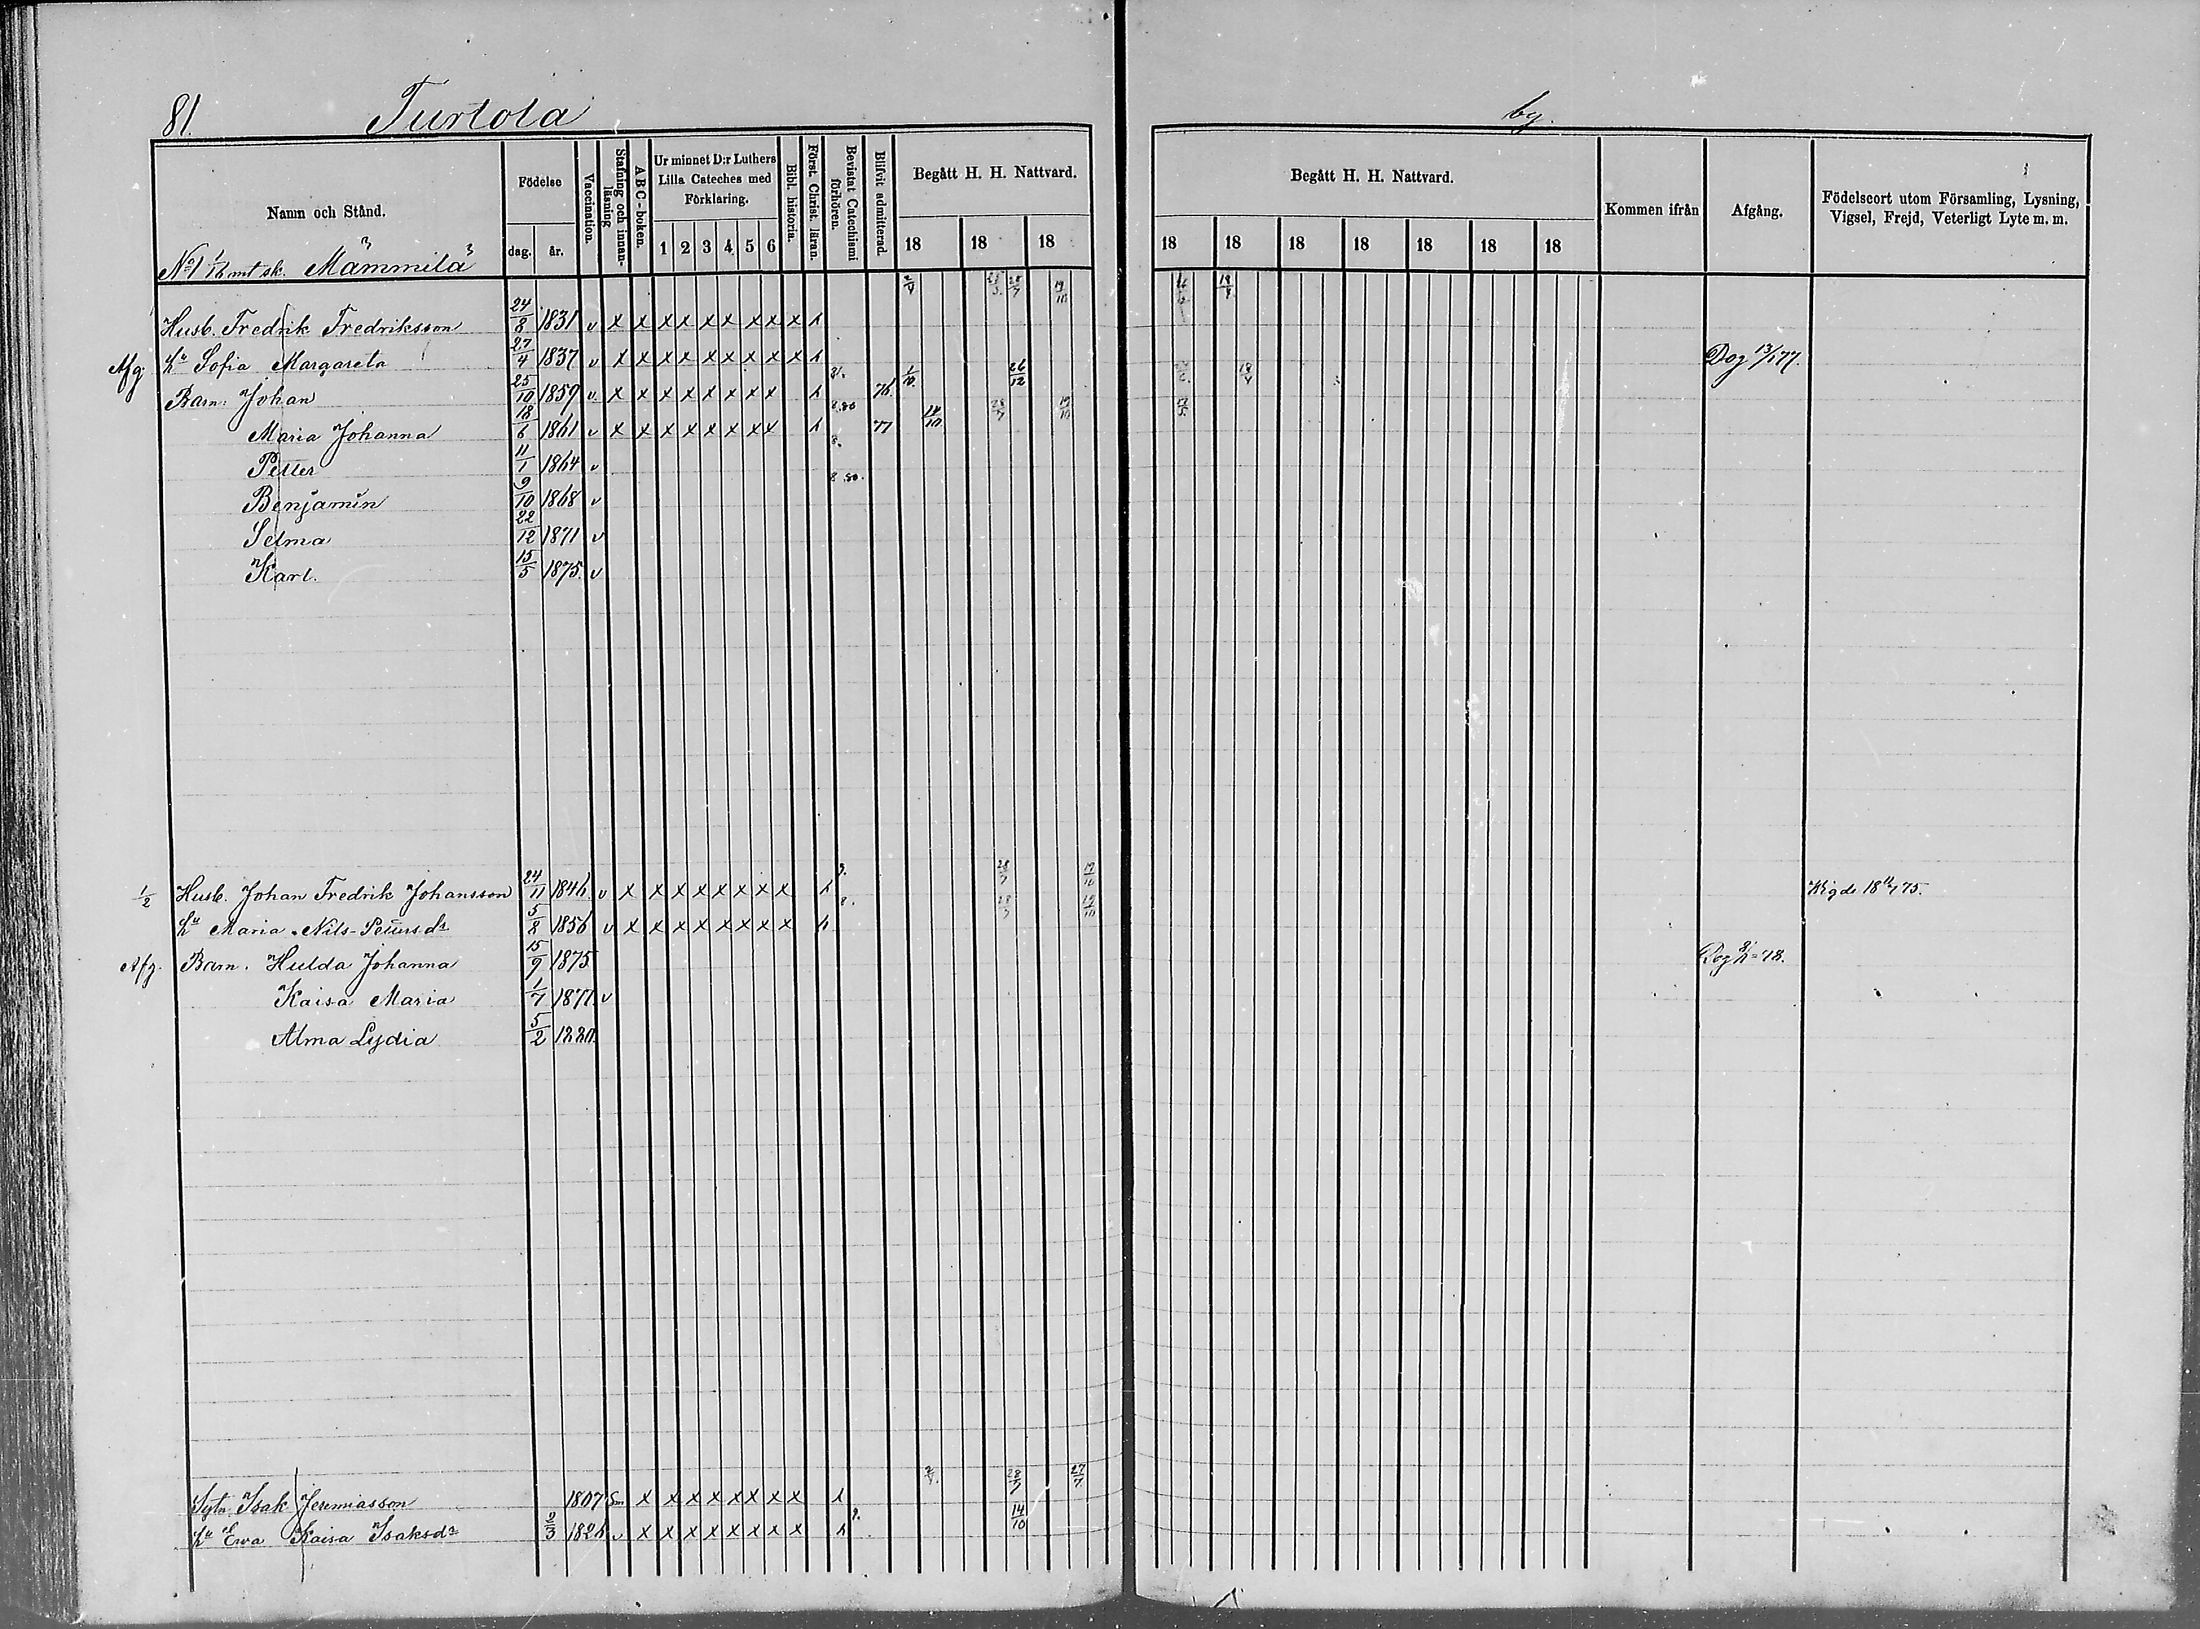 81. Turtola by.
Namn och Stånd.
Födelse
dag. år.
Vaccination.
Stafning och innanläsning
A B C-boken.
Ur minnet D:r Luthers Lilla Cateches med Förklaring.
1 2 3 4 5 6
Bibl. historia.
Först. Christ. läran.
Bevistat Catechismi förhören.
Blifvit admitterad.
Begått H. H. Nattvard.
18 18 18
Begått H. H. Nattvard.
18 18 18 18 18 18 18
Kommen ifrån
Afgång.
Födelseort utom Församling, Lysning, Vigsel, Frejd, Veterligt Lyte m. m.
No 1 1/16 mt sk. Mämmilä
Husb. Fredrik Fredriksson 24/8 1831 v x x x x x x x x x h
Afg. Hu Sofia Margareta 27/4 1837 v x x x x x x x x x h Dog 13/1 77.
Barn: Johan 25/10 1859 v. x x x x x x x x h 76. 1/10 26/12 18/4
Maria Johanna 18/6 1861 v x x x x x x x x h 8.80 77 14/10 28/7 19/10
Petter 11/1 1864 v 8.
Benjamin 9/10 1868 v 8.80.
Selma 22/12 1871 v
Karl. 15/5 1875. v
1/2 Husb. Johan Fredrik Johansson 24/11 1846. v x x x x x x x x h 28/7 19/10 Wigde 18 75.
Hu Maria Nils-Petters dr 5/8 1856 v x x x x x x x x h 8. 28/7 19/10
Afg. Barn. Hulda Johanna 15/9 1875 Dog 78.
Kaisa Maria 1/7 1877. v
Alma Lydia 5/2 1880.
28/7 27/7
Sytn. Isak Jeremiasson 1807 Sm x x x x x x x x h
Hu Ewa Kaisa Isaksdr 2/3 1826 v x x x x x x x x h 14/10